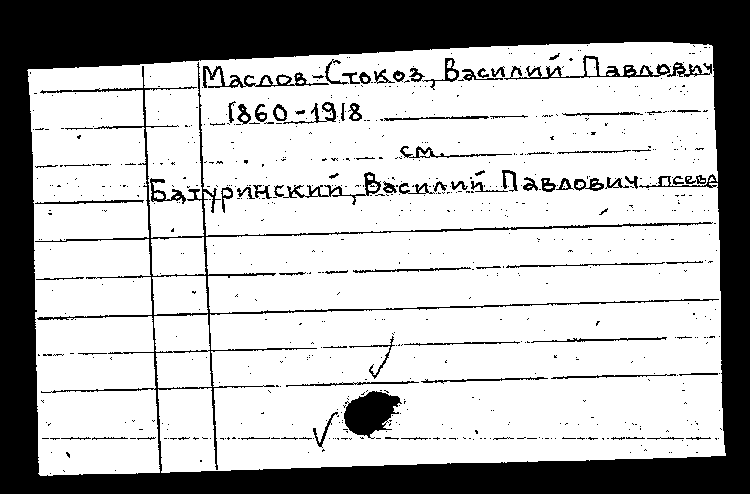 Маслов-Стокоз, Василий Павлович
1860-1918
см.
Батуринский, Василий Павлович псевд